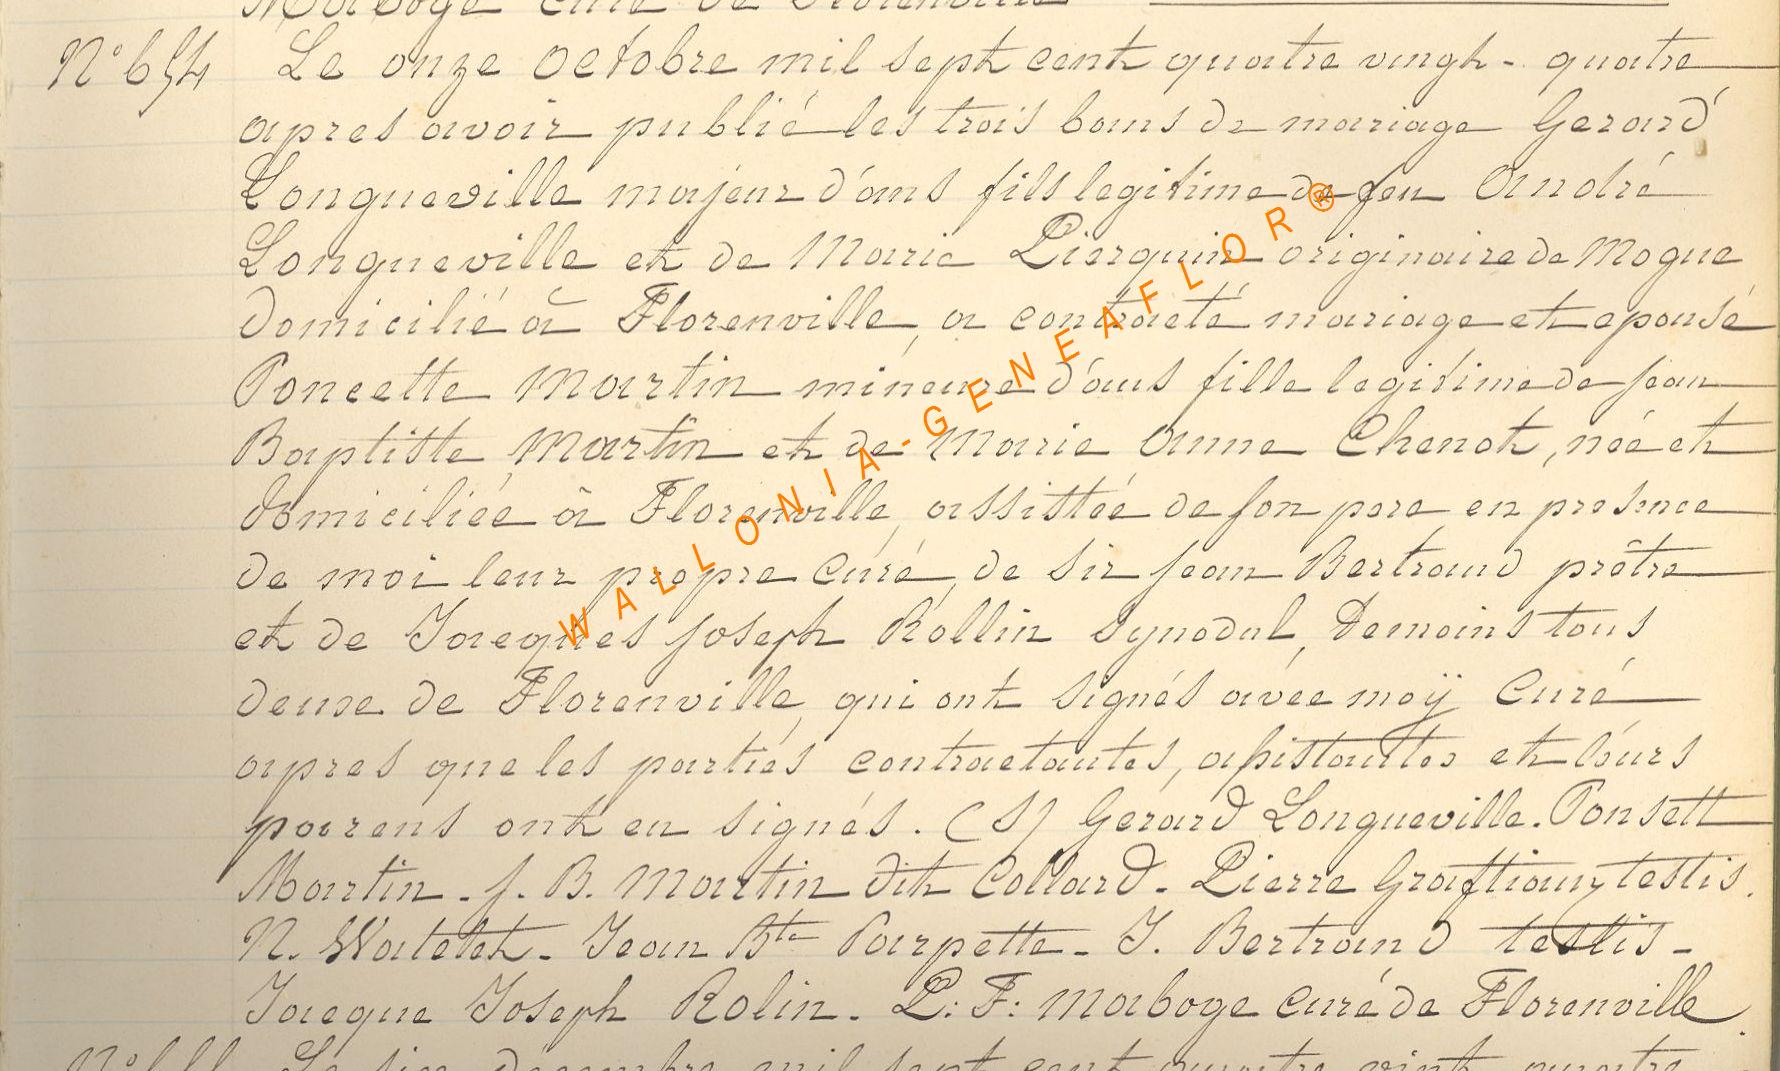 Maboge curé de Florenville
N° 654 Le onze Octobre mil sept cent quatre vingt - quatre
apres avoir publié les trois bans de mariage Gerard
Longueville majeur d'ans fils legitime de feu André
Longueville et de Marie Pierquin originaire de Mogue
domicilié à Florenville, a contracté mariage et epousé
Poncette Martin mineure d'ans fille legitime de jean
Baptiste Martin et de Marie Anne Chenot, née et
domiciliée à Florenville, assistée de son pere en presence
de moi leur propre curé, de sir jean Bertrand prêtre
et de Jacques joseph Rollin synodal, temoins tous
deux de Florenville, qui ont signés avec moÿ Curé
apres que les parties contractantes, assistantes et leurs
parens ont eu signés. (S) Gérard Longueville. Ponsett
Martin - J. B. Martin dit Collard - Pierre testis.
N. Watelet - Jean Bte Parpette - J. Bertrand testis -
Jacque Joseph Rolin - L: F: Maboge curé de Florenville.
Le six decembre mil sept cent quatre vint quatre
WALLONIA-GENEAFLOR®